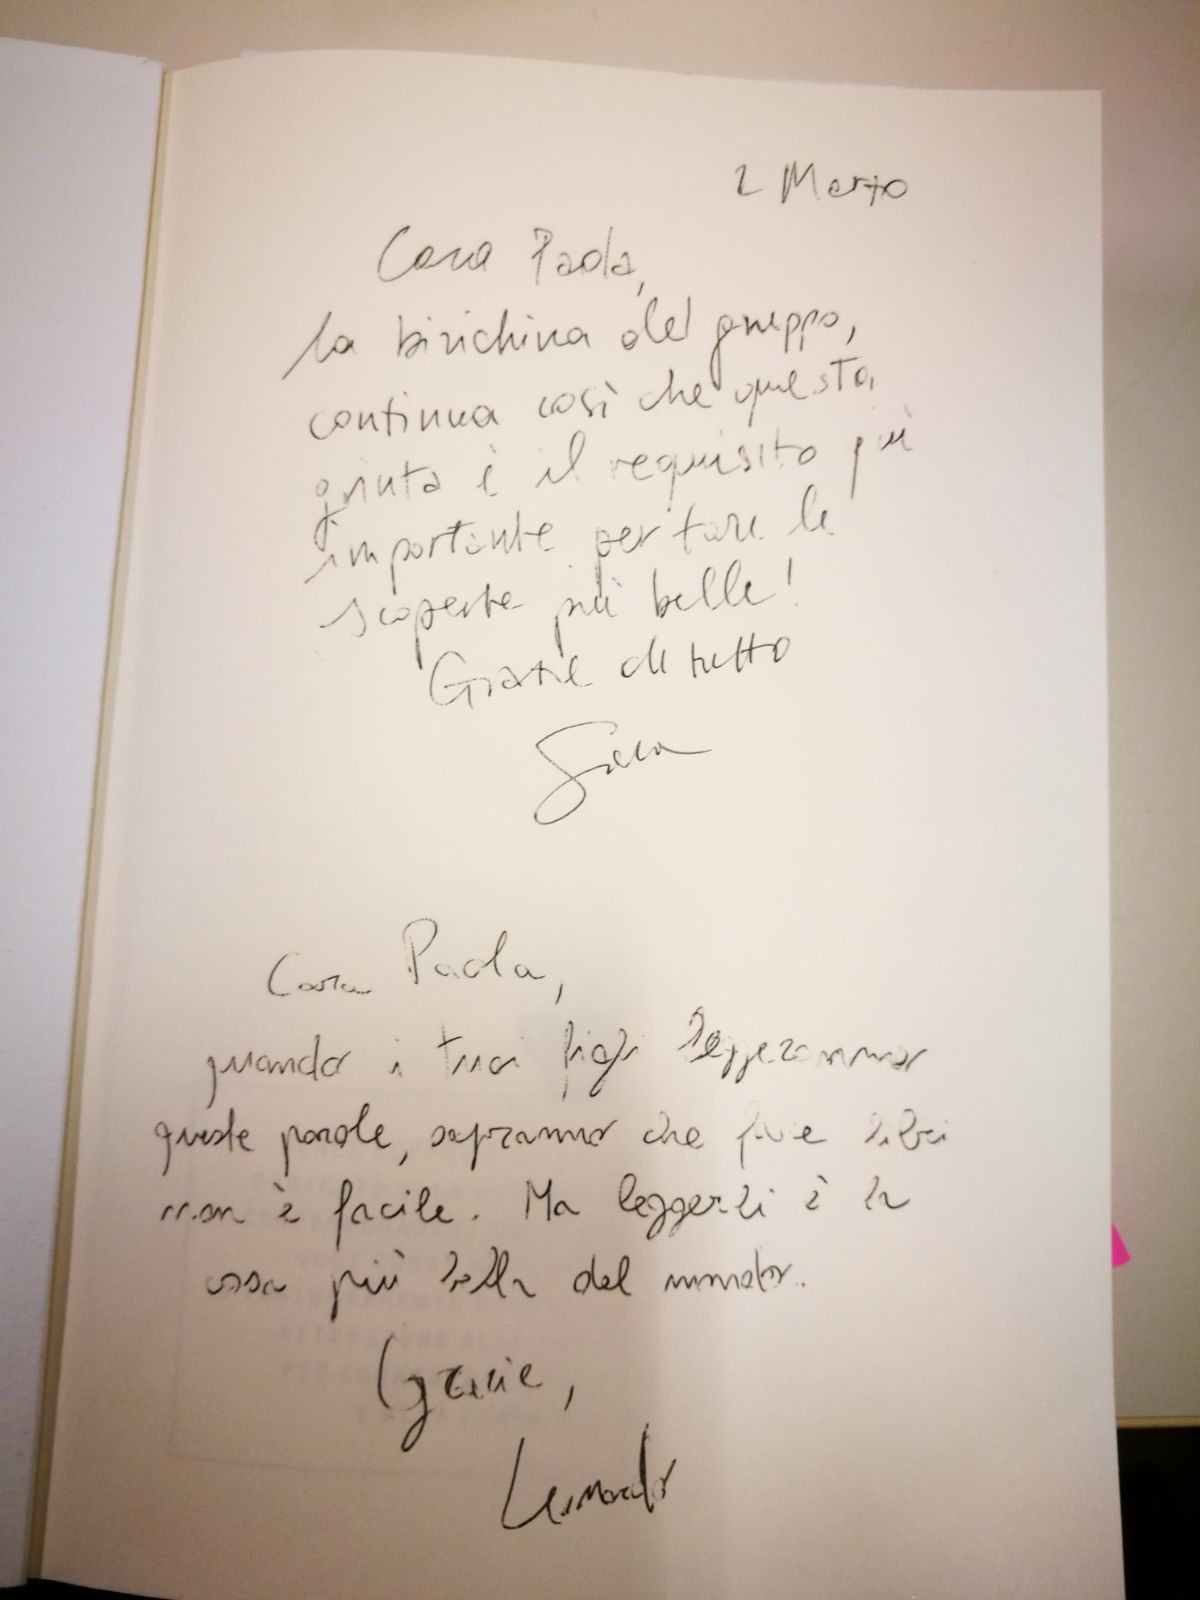 2 Marzo
Cara Paola,
la birichina del gruppo,
continua così che questa
grinta è il requisito più
importante per fare le
scoperte più belle!
Grazie di tutto
Cara Paola,
quando i tuoi figli leggeranno
queste parole, sapranno che fare libri
non è facile. Ma leggerli è la
cosa più bella del mondo.
Grazie,
Leonardo